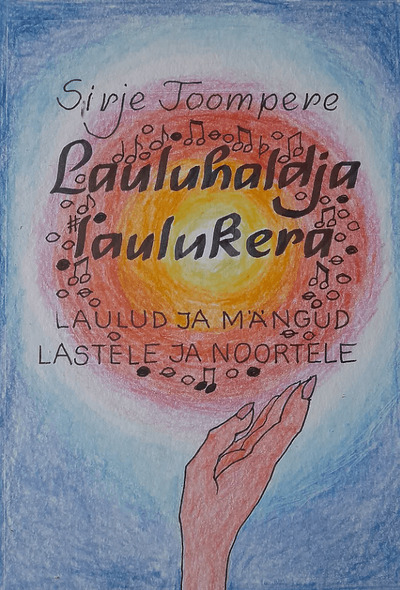 Sirje Toompere
Lauluhaldja
laulukera
LAULUD JA MÄNGUD
LASTELE JA NOORTELE